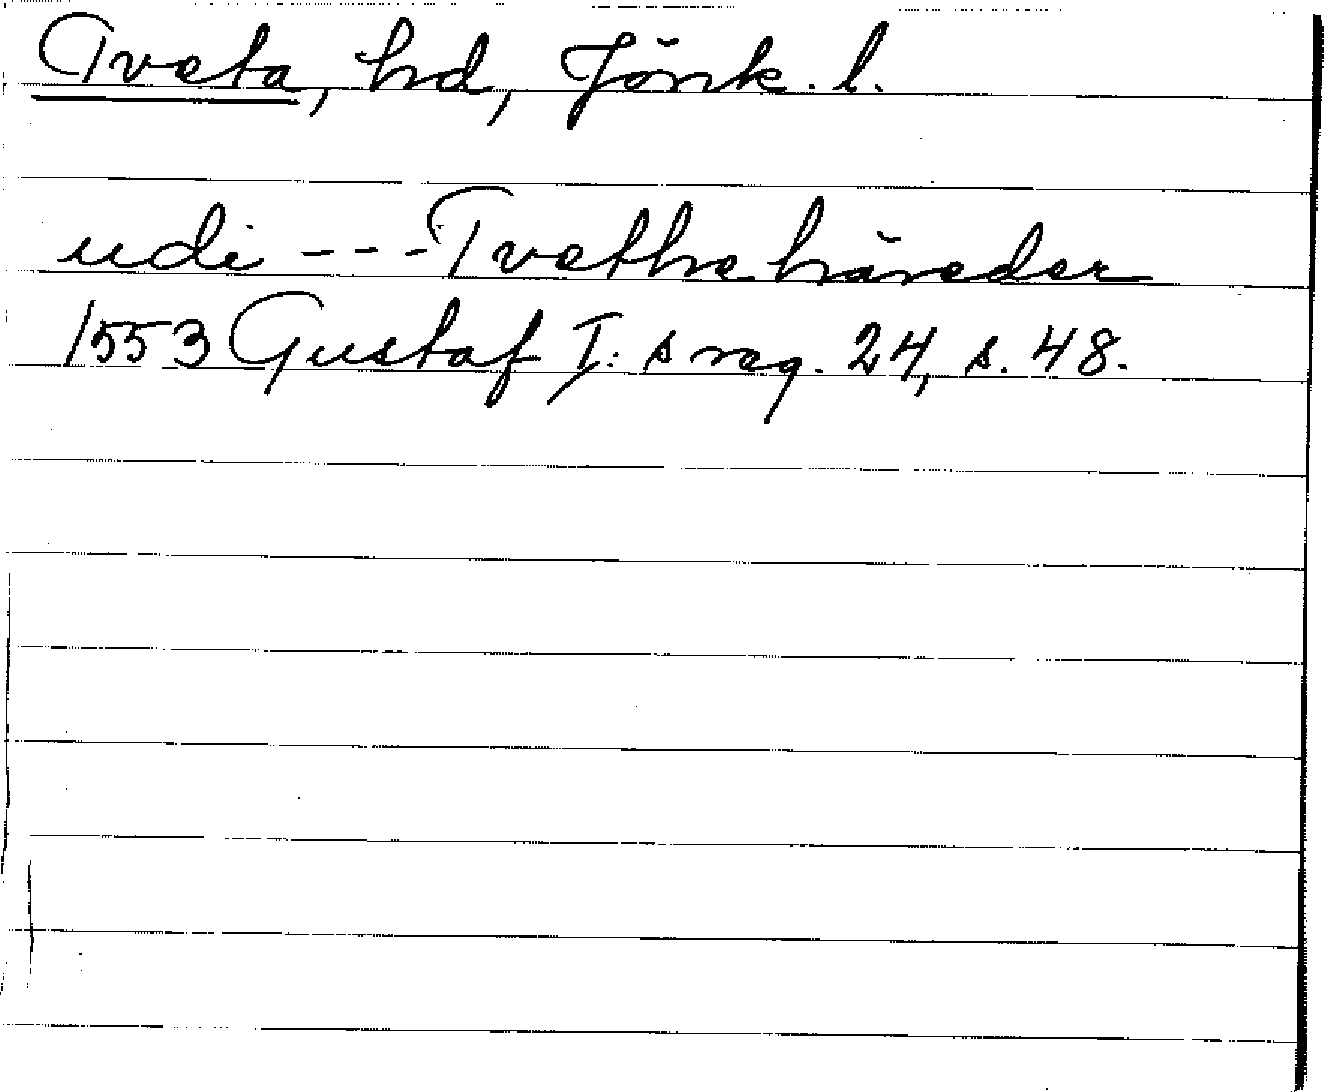 Tveta, hd, Jönk. l.
udi --- Tvethe häreder
1553 Gustaf I: s reg. 24, s. 48.